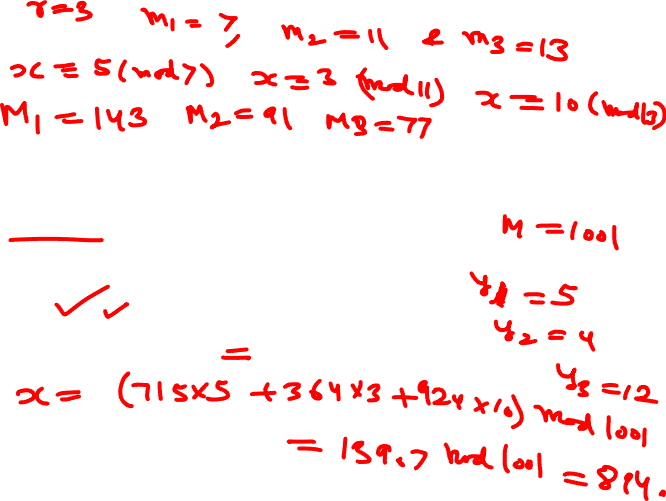 r=3 m₁=7, m₂=11 & m₃=13
x≡5(mod7) x≡3 (mod11) x≡10(mod13)
M₁=143 M₂=91 M₃=77
M=1001
y₁=5
y₂=4
y₃=12
=
x= (715×5 +364×3+924×10) mod 1001
= 139.7 mod 1001 =894.